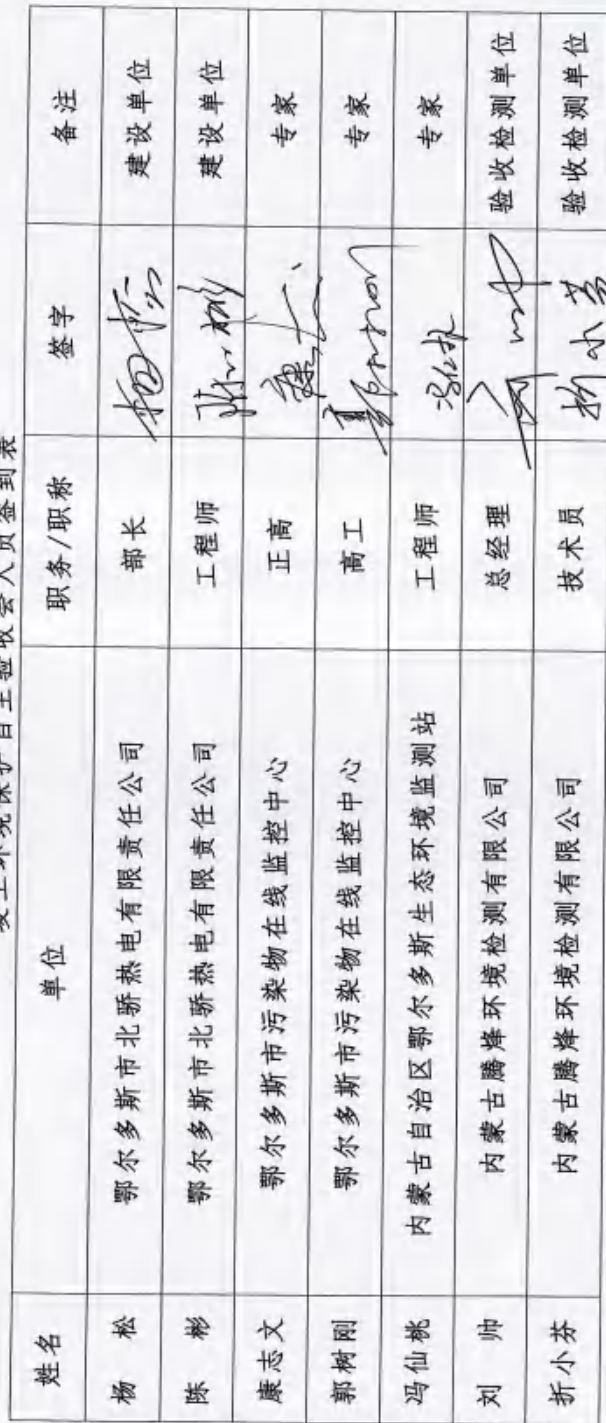 竣工环境保护自主验收会人员签到表
姓名 单位 职务/职称 签字 备注
杨松 鄂尔多斯市北骄热电有限责任公司 部长 杨松 建设单位
陈彬 鄂尔多斯市北骄热电有限责任公司 工程师 陈彬 建设单位
康志文 鄂尔多斯市污染物在线监控中心 正高 专家
郭树刚 鄂尔多斯市污染物在线监控中心 高工 专家
冯仙桃 内蒙古自治区鄂尔多斯生态环境监测站 工程师 专家
刘帅 内蒙古腾烽环境检测有限公司 总经理 验收检测单位
折小芬 内蒙古腾烽环境检测有限公司 技术员 折小芬 验收检测单位